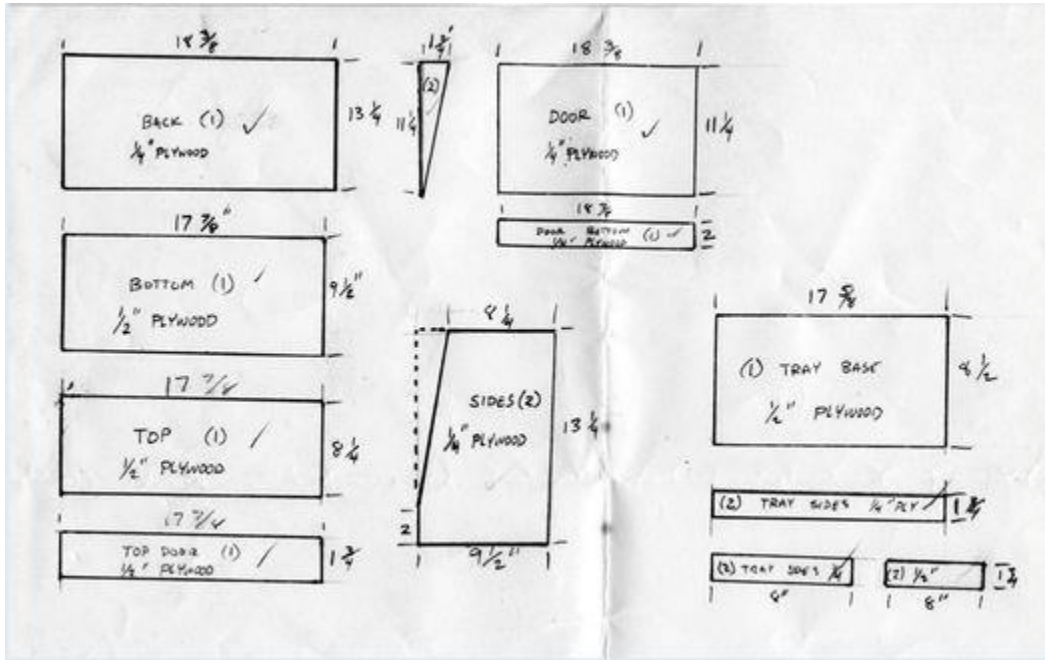 18 3/8
BACK (1) ✓
1/4" PLYWOOD
13 1/4
(2)
11 1/4
18 3/8
DOOR (1) ✓
1/4" PLYWOOD
11 1/4
DOOR BOTTOM (1) ✓
1/4" PLYWOOD
2
17 7/8"
BOTTOM (1) ✓
1/2" PLYWOOD
9 1/2"
17 7/8
TOP (1) ✓
1/2" PLYWOOD
8 1/4
17 7/8
TOP DOOR (1) ✓
PLYWOOD
1 3/4
8 1/4
SIDES (2)
1/4" PLYWOOD
13 1/4
2
9 1/2"
17 5/8
(1) TRAY BASE
1/2" PLYWOOD
8 1/2
(2) TRAY SIDES 1/4" PLY ✓
1 3/4
(2) TRAY SIDES 1/4
8"
(2) 1/2"
8"
1 3/4